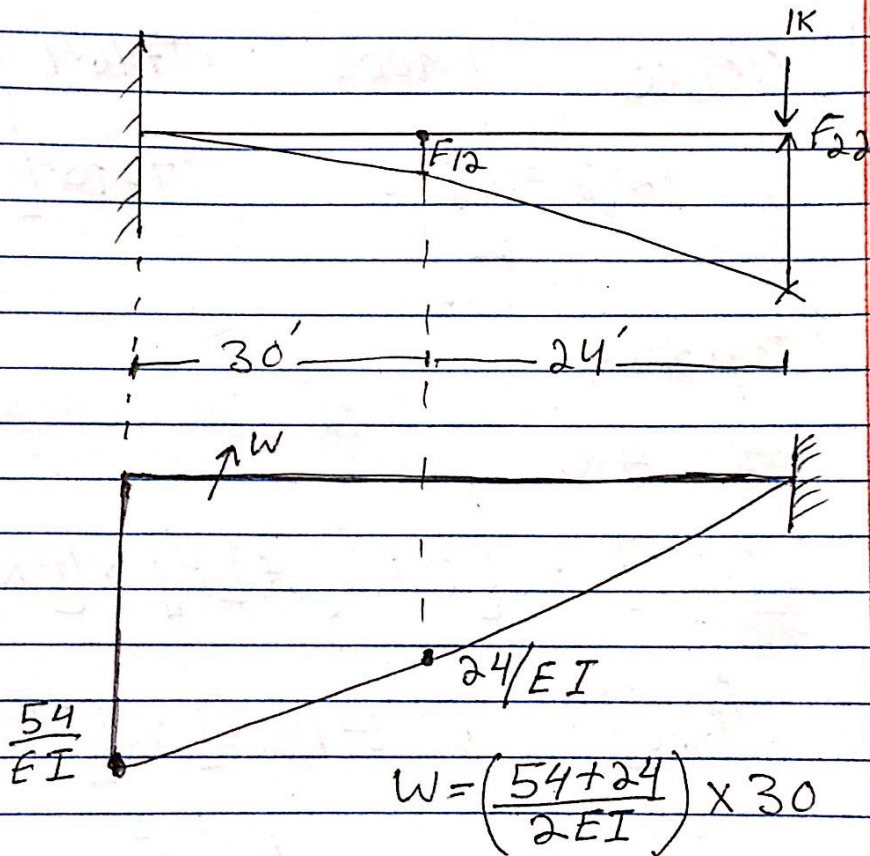 1K
F12
F22
30'
24'
W
24/EI
54/EI
W = ((54+24)/2EI) x 30